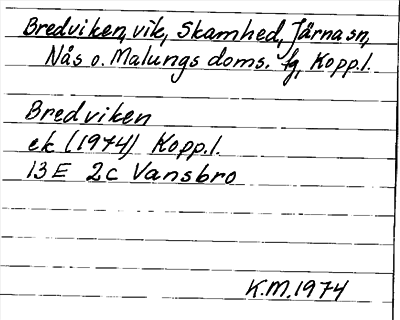 Bredviken, vik, Skamhed, Järna sn,
Nås o. Malungs doms. fg, Kopp.l.
Bredviken
ek (1974) Kopp.l.
13E 2c Vansbro
K.M.1974